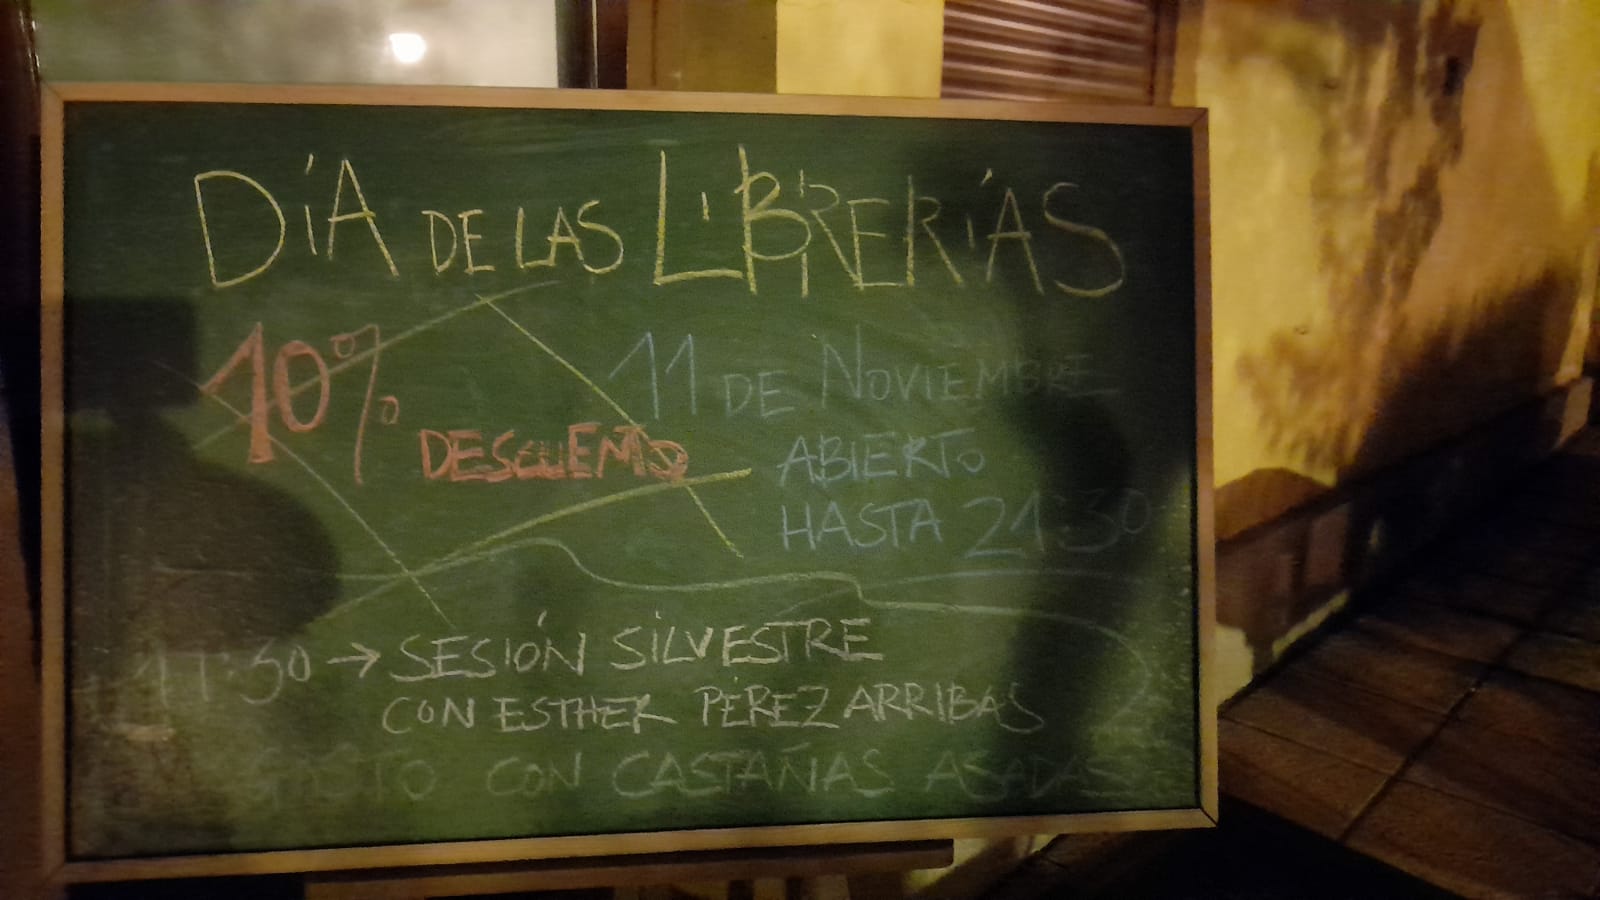 DÍA DE LAS LIBRERÍAS
10%
DESCUENTO
11 DE NOVIEMBRE
ABIERTO
HASTA 21:30
→ SESIÓN SILVESTRE
CON ESTHER PÉREZ ARRIBAS
CON CASTAÑAS ASADAS